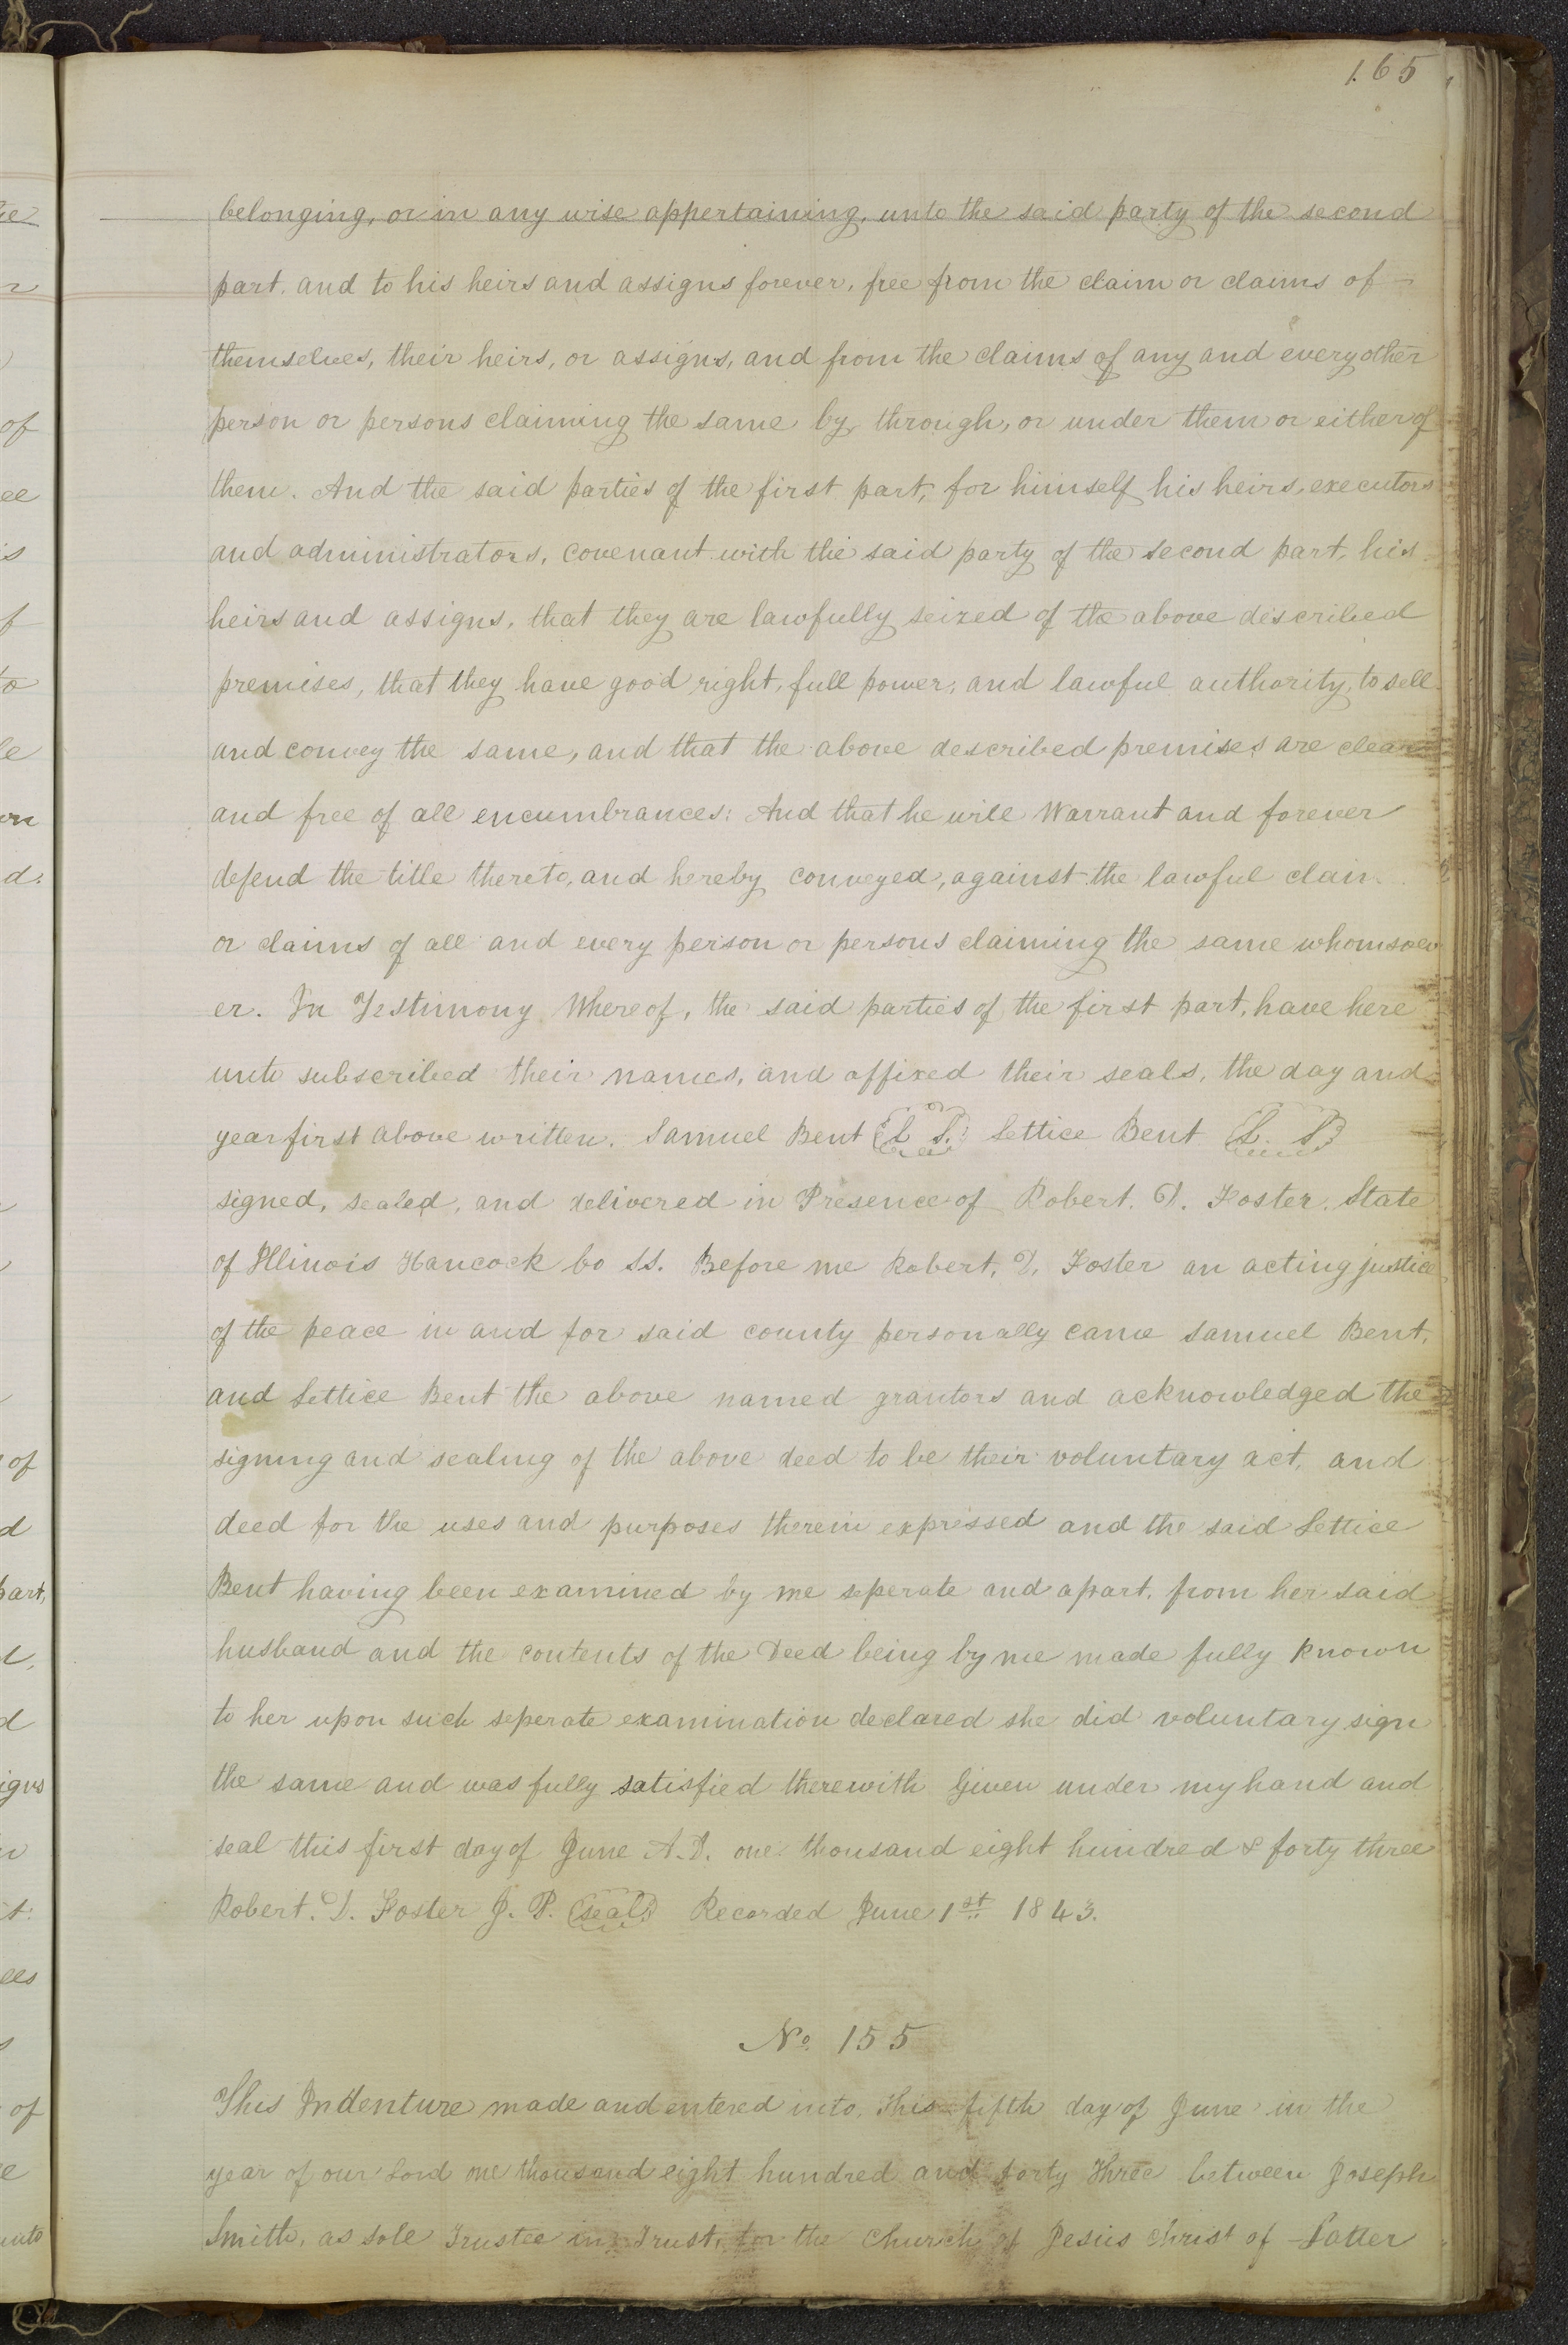 165
belonging, or in any wise appertaining, unto the said party of the second
part, and to his heirs and assigns forever, free from the claim or claims of
themselves, their heirs, or assigns, and from the claims of any and every other
person or persons claiming the same by, through, or under them or either of
them. And the said parties of the first part, for himself his heirs, executors
and administrators, covenant with the said party of the second part, his
heirs and assigns, that they are lawfully seized of the above described
premises, that they have good right, full power, and lawful authority, to sell
and convey the same, and that the above described premises are clear
and free of all encumbrances: And that he will Warrant and forever
defend the title thereto, and hereby conveyed, against the lawful claim
or claims of all and every person or persons claiming the same whomsoev
er. In Testimony Whereof, the said parties of the first part, have here
unto subscribed their names, and affixed their seals, the day and
year first above written. Samuel Bent (L S.) Lettice Bent (L. S)
signed, sealed, and delivered in Presence of Robert. D. Foster. State
of Illinois Hancock Co SS. Before me Robert. D. Foster an acting justice
of the peace in and for said county personally came Samuel Bent,
and Lettice Bent the above named grantors and acknowledged the
signing and sealing of the above deed to be their voluntary act, and
deed for the uses and purposes therein expressed and the said Lettice
Bent having been examined by me seperate and apart, from her said
husband and the contents of the Deed being by me made fully known
to her upon such seperate examination declared she did voluntary sign
the same and was fully satisfied therewith Given under my hand and
seal this first day of June A.D. one thousand eight hundred & forty three
Robert. D. Foster J. P. (seal) Recorded June 1st 1843.
No. 155
This Indenture made and entered into, this fifth day of June in the
year of our Lord one thousand eight hundred and forty three between Joseph
Smith, as sole Trustee in Trust, for the Church of Jesus Christ of Latter